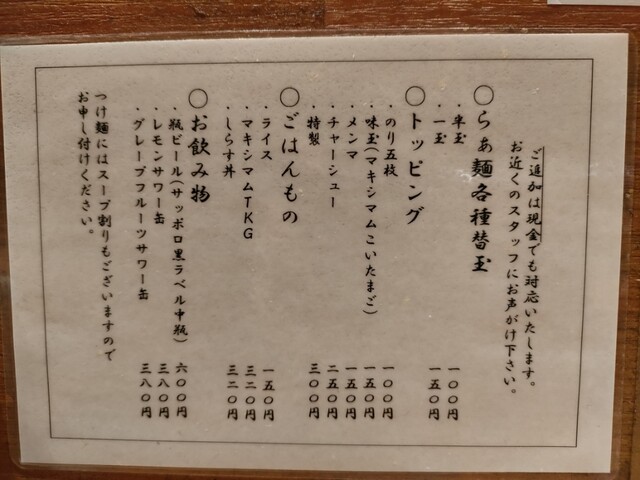 ご追加は現金でも対応いたします。
お近くのスタッフにお声がけ下さい。
〇らぁ麺各種替玉
・半玉 一〇〇円
・一玉 一五〇円
〇トッピング
・のり五枚 一〇〇円
・味玉(マキシマムこいたまご) 一五〇円
・メンマ 一五〇円
・チャーシュー 二五〇円
・特製 三〇〇円
〇ごはんもの
・ライス 一五〇円
・マキシマムTKG 三二〇円
・しらす丼 三二〇円
〇お飲み物
・瓶ビール(サッポロ黒ラベル中瓶) 六〇〇円
・レモンサワー缶 三八〇円
・グレープフルーツサワー缶 三八〇円
つけ麺にはスープ割りもございますので
お申し付けください。